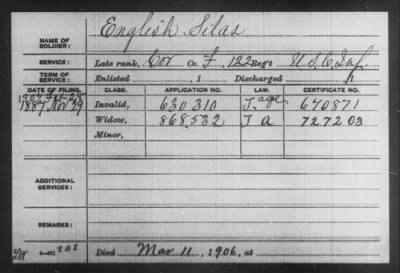 NAME OF SOLDIER: English Silas
SERVICE: Late rank, Cor Co. F, 122 Reg't U.S.C. Inf.
TERM OF SERVICE: Enlisted , 1 Discharged , 1
DATE OF FILING. CLASS. APPLICATION NO. LAW. CERTIFICATE NO.
1907 Feb 25 Invalid, 630310 J. age 670871
1887 Nov 29 Widow, 868,532 J a 727203
Minor,
ADDITIONAL SERVICES:
REMARKS:
Died Mar 11, 1906, at